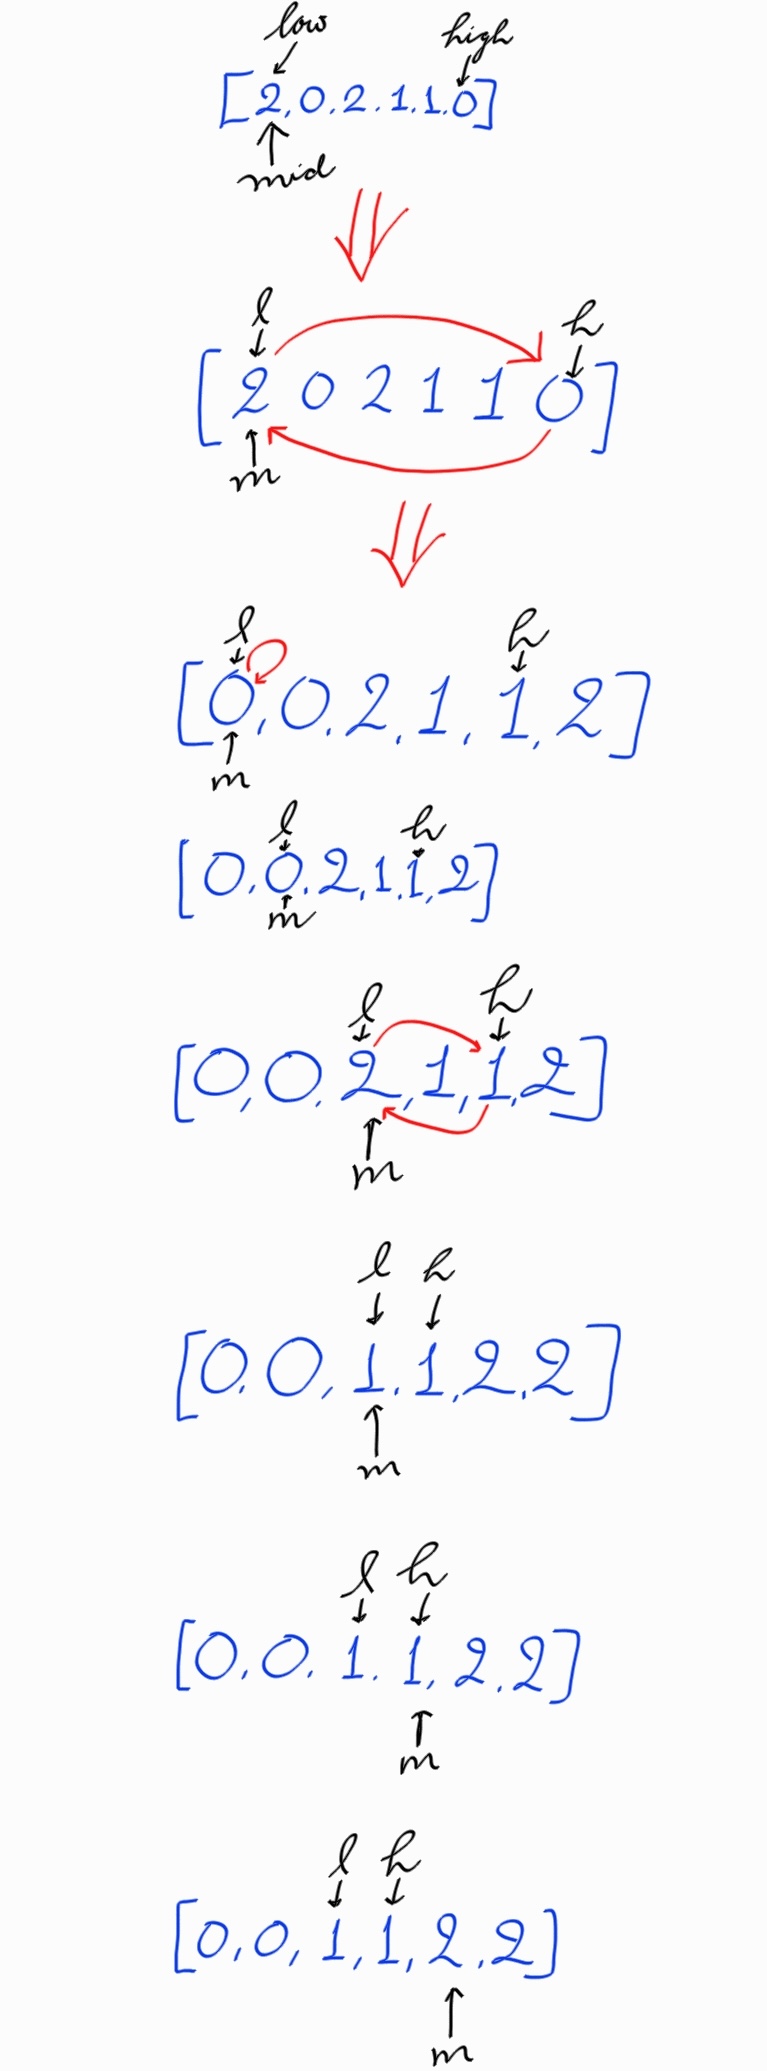 low high
[2,0.2.1.1.0]
mid
l h
[2 0 2 1 1 0]
m
l h
[0,0.2,1,1,2]
m
l h
[0.0.2,1.1,2]
m
l h
[0,0.2,1,1,2]
m
l h
[0.0,1.1,2,2]
m
l h
[0.0.1.1,2.2]
m
l h
[0,0,1,1,2,2]
m